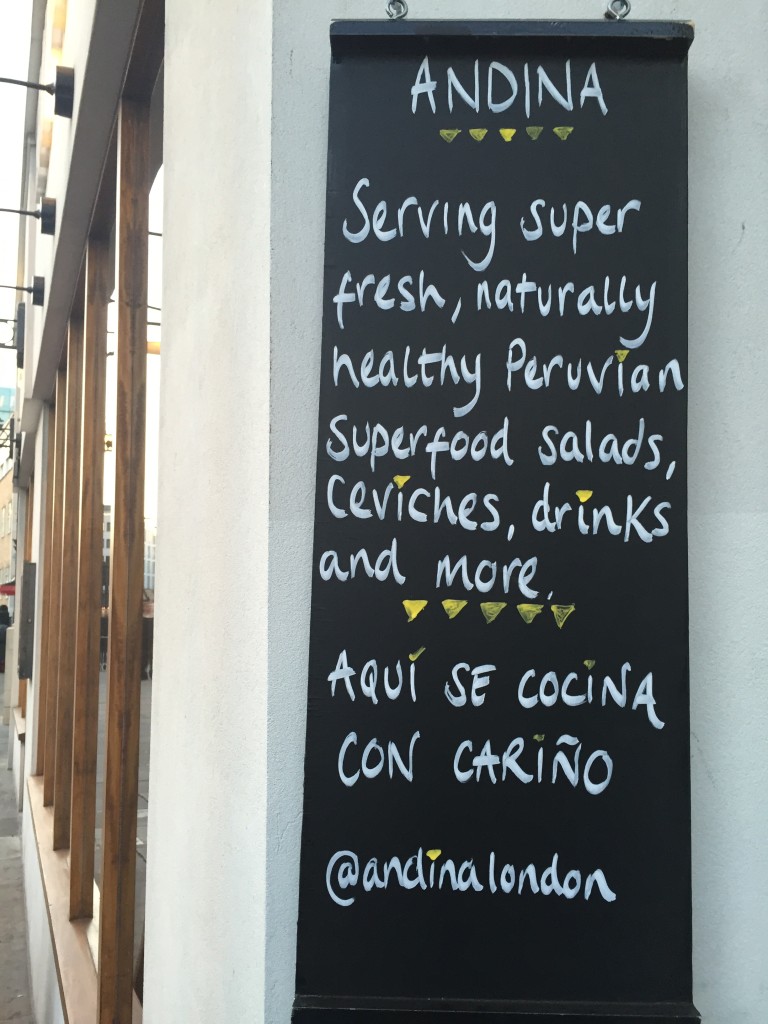 ANDINA
Serving super
fresh, naturally
healthy Peruvian
Superfood salads,
Ceviches, drinks
and more.
AQUÍ SE COCINA
CON CARIÑO
@andinalondon